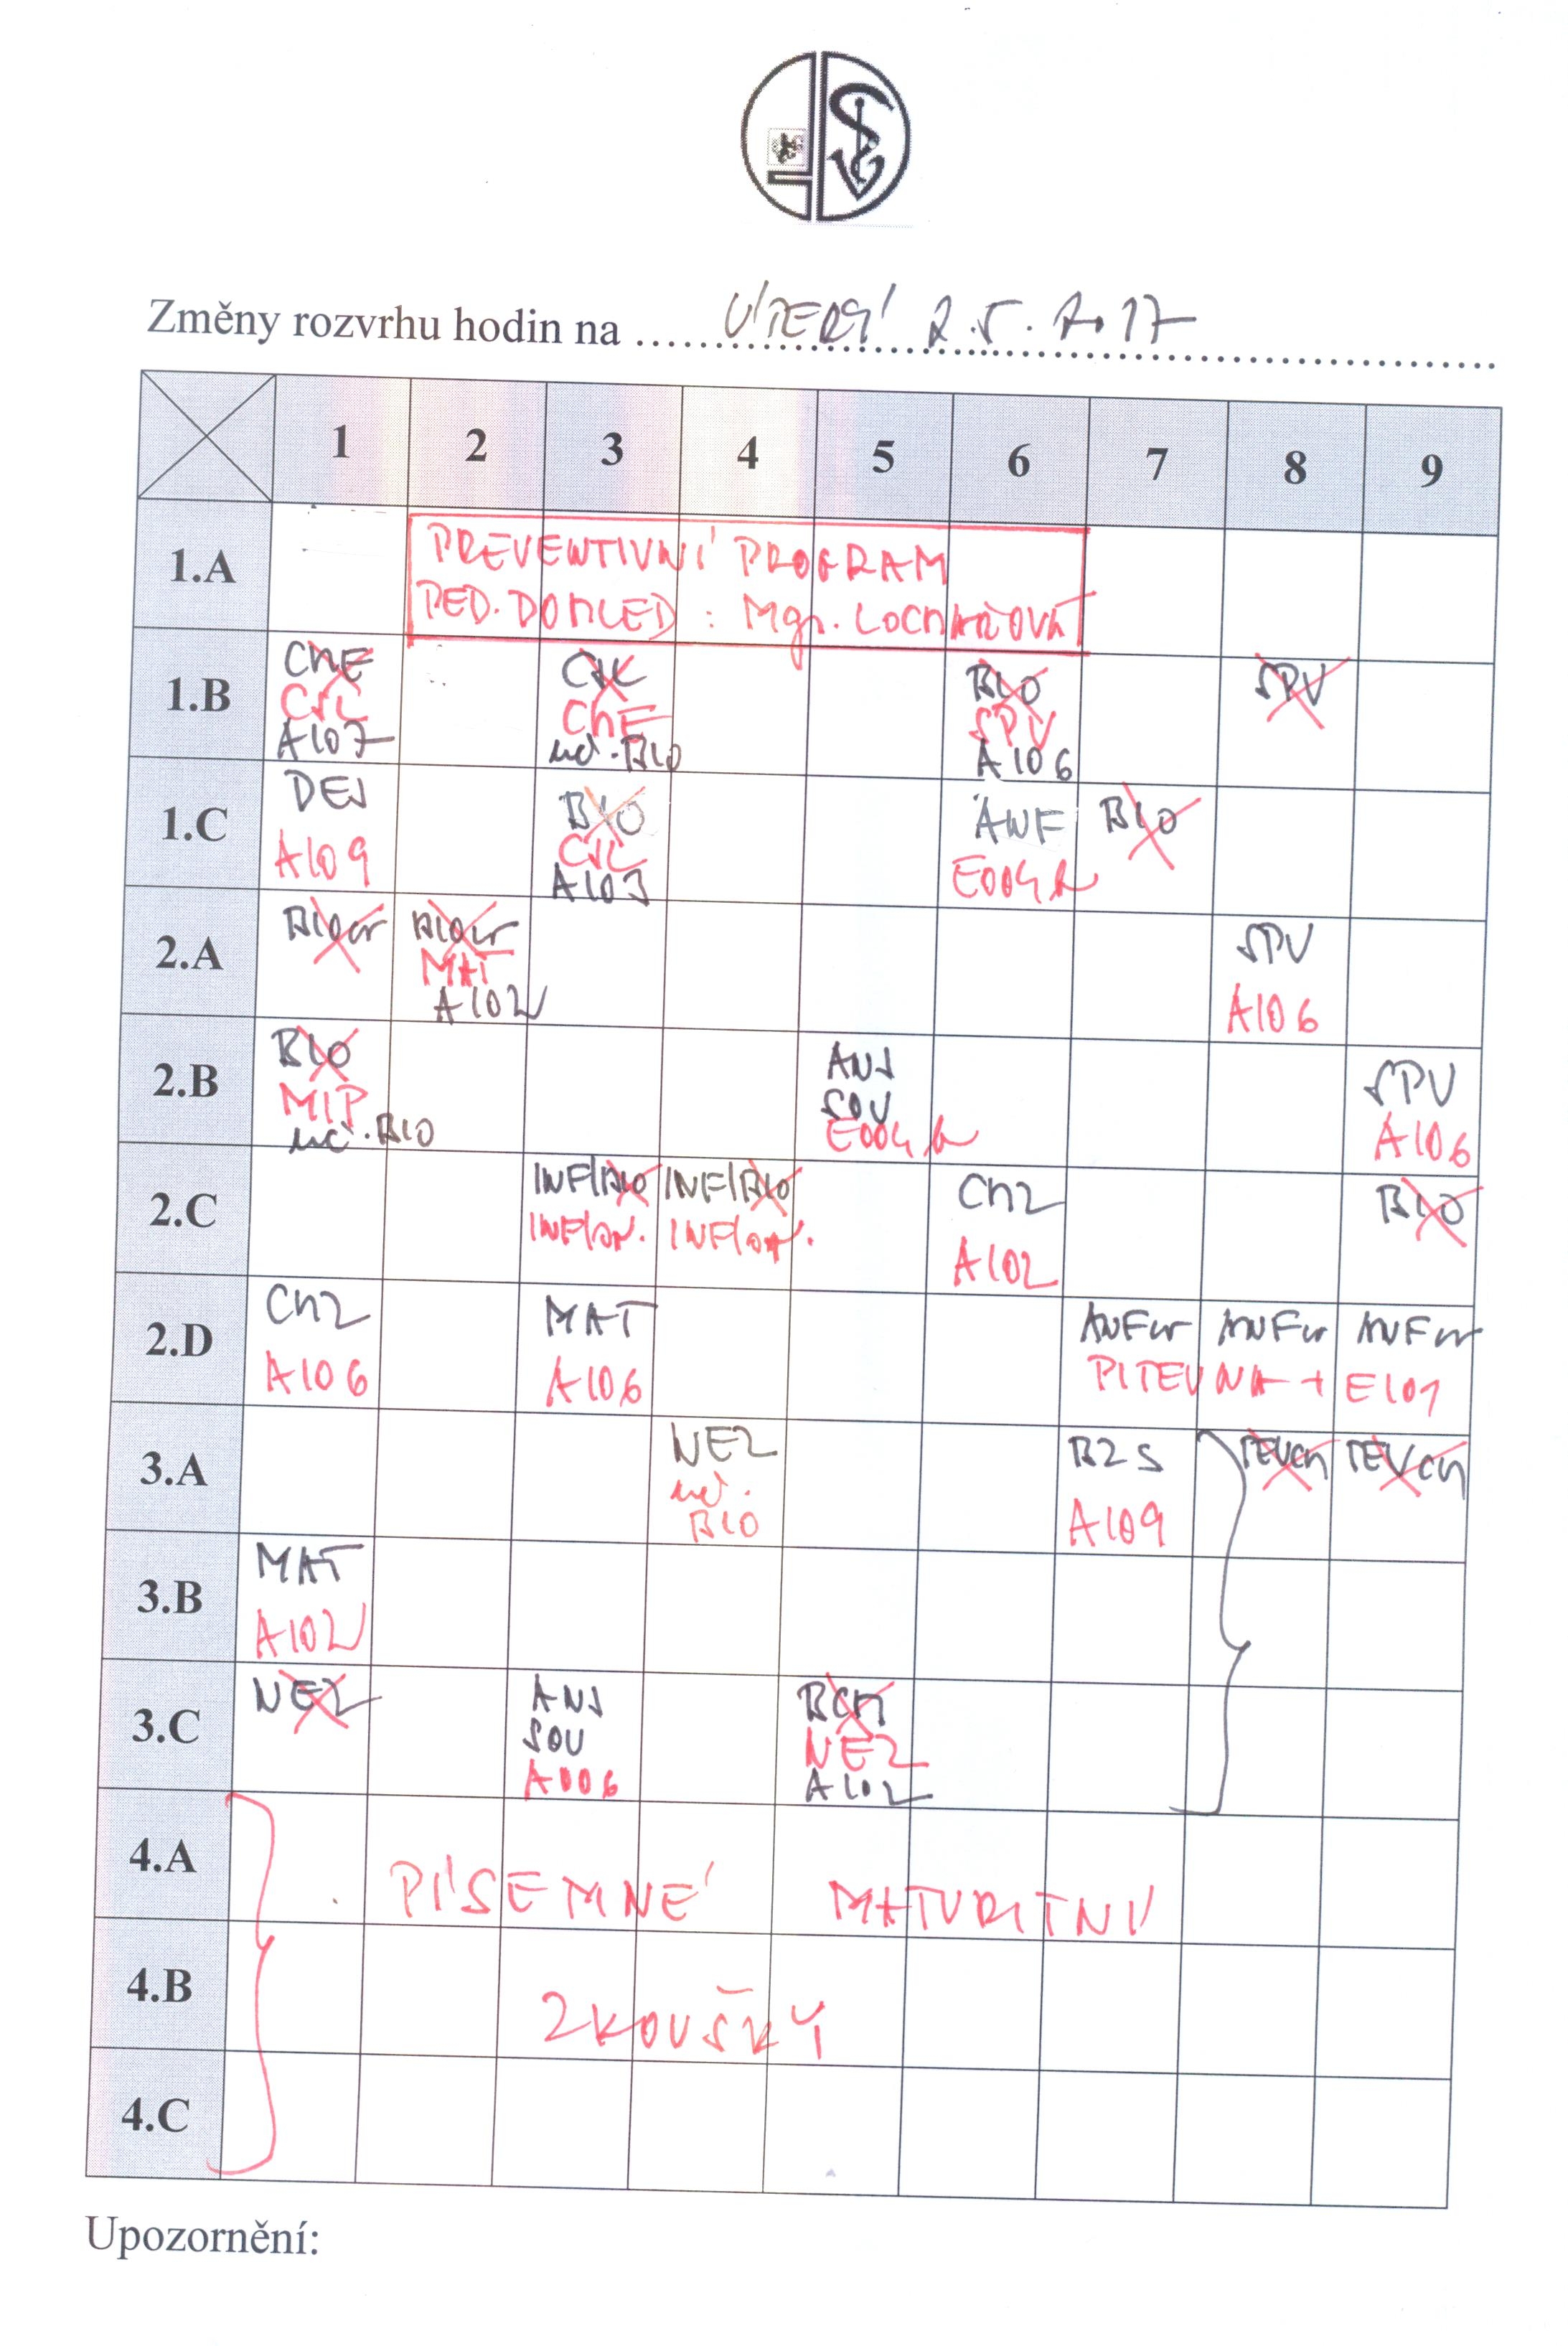 Změny rozvrhu hodin na ÚTERÝ 2.5.2017
1 2 3 4 5 6 7 8 9
1.A
PREVENTIVNÍ PROGRAM
PED. DOHLED : Mgr.
1.B
ChE
CJL
A107
CJL
ChE
uč. BIO
BIO
SPV
A106
SPV
1.C
DEJ
A109
BIO
CJL
A103
E004
BIO
2.A
BIOcv
BIOcv
MAT
A102
SPV
A106
2.B
BIO
MIP
uč. BIO
ANJ
SOU
E004
SPV
A106
2.C
INF/BIO
INF/
INF/BIO
INF/
CHZ
A102
BIO
2.D
CHZ
A106
MAT
A106
ANFcv ANFcv ANFcv
PITEVNA + E101
3.A
NEZ
uč.
BIO
BZS
A109
3.B
MAT
A102
3.C
NEZ
ANJ
SOU
A006
BCH
NEZ
A102
4.A
PÍSEMNÉ MATURITNÍ
4.B
ZKOUŠKY
4.C
Upozornění: